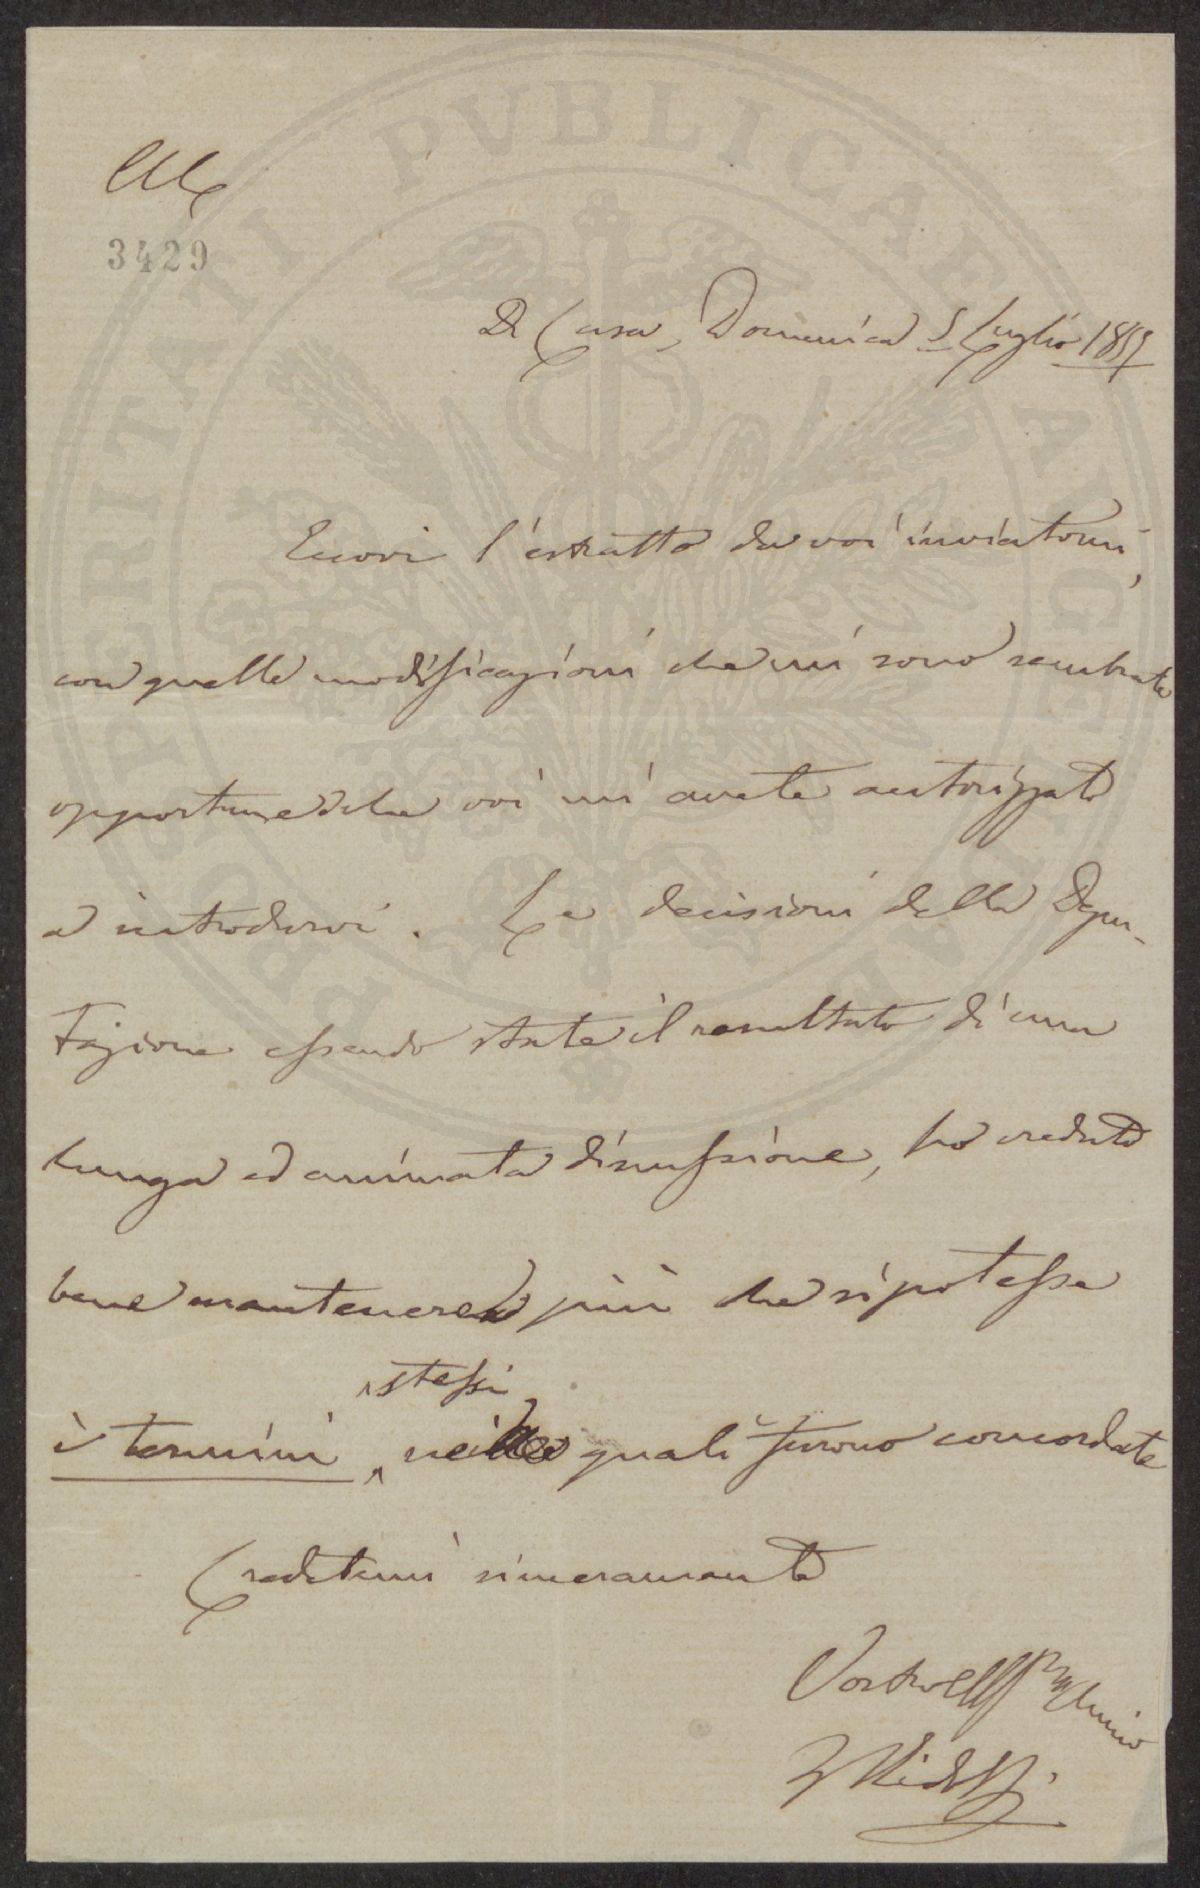 3429
Di Casa, Domenica 5 Luglio 1857
Eccovi l'estratto da voi inviatomi,
con quelle modificazioni che mi sono sembrate
opportune e che voi mi avete autorizzato
a introdurvi. Le decisioni della Depu-
tazione essendo state il resultato di una
lunga ed animata discussione, ho creduto
bene mantenere più che si potesse
stessi
i termini nei quali furono concordate
Credetemi sinceramente
PROSPERITATI PVBLICAE AVGENDAE